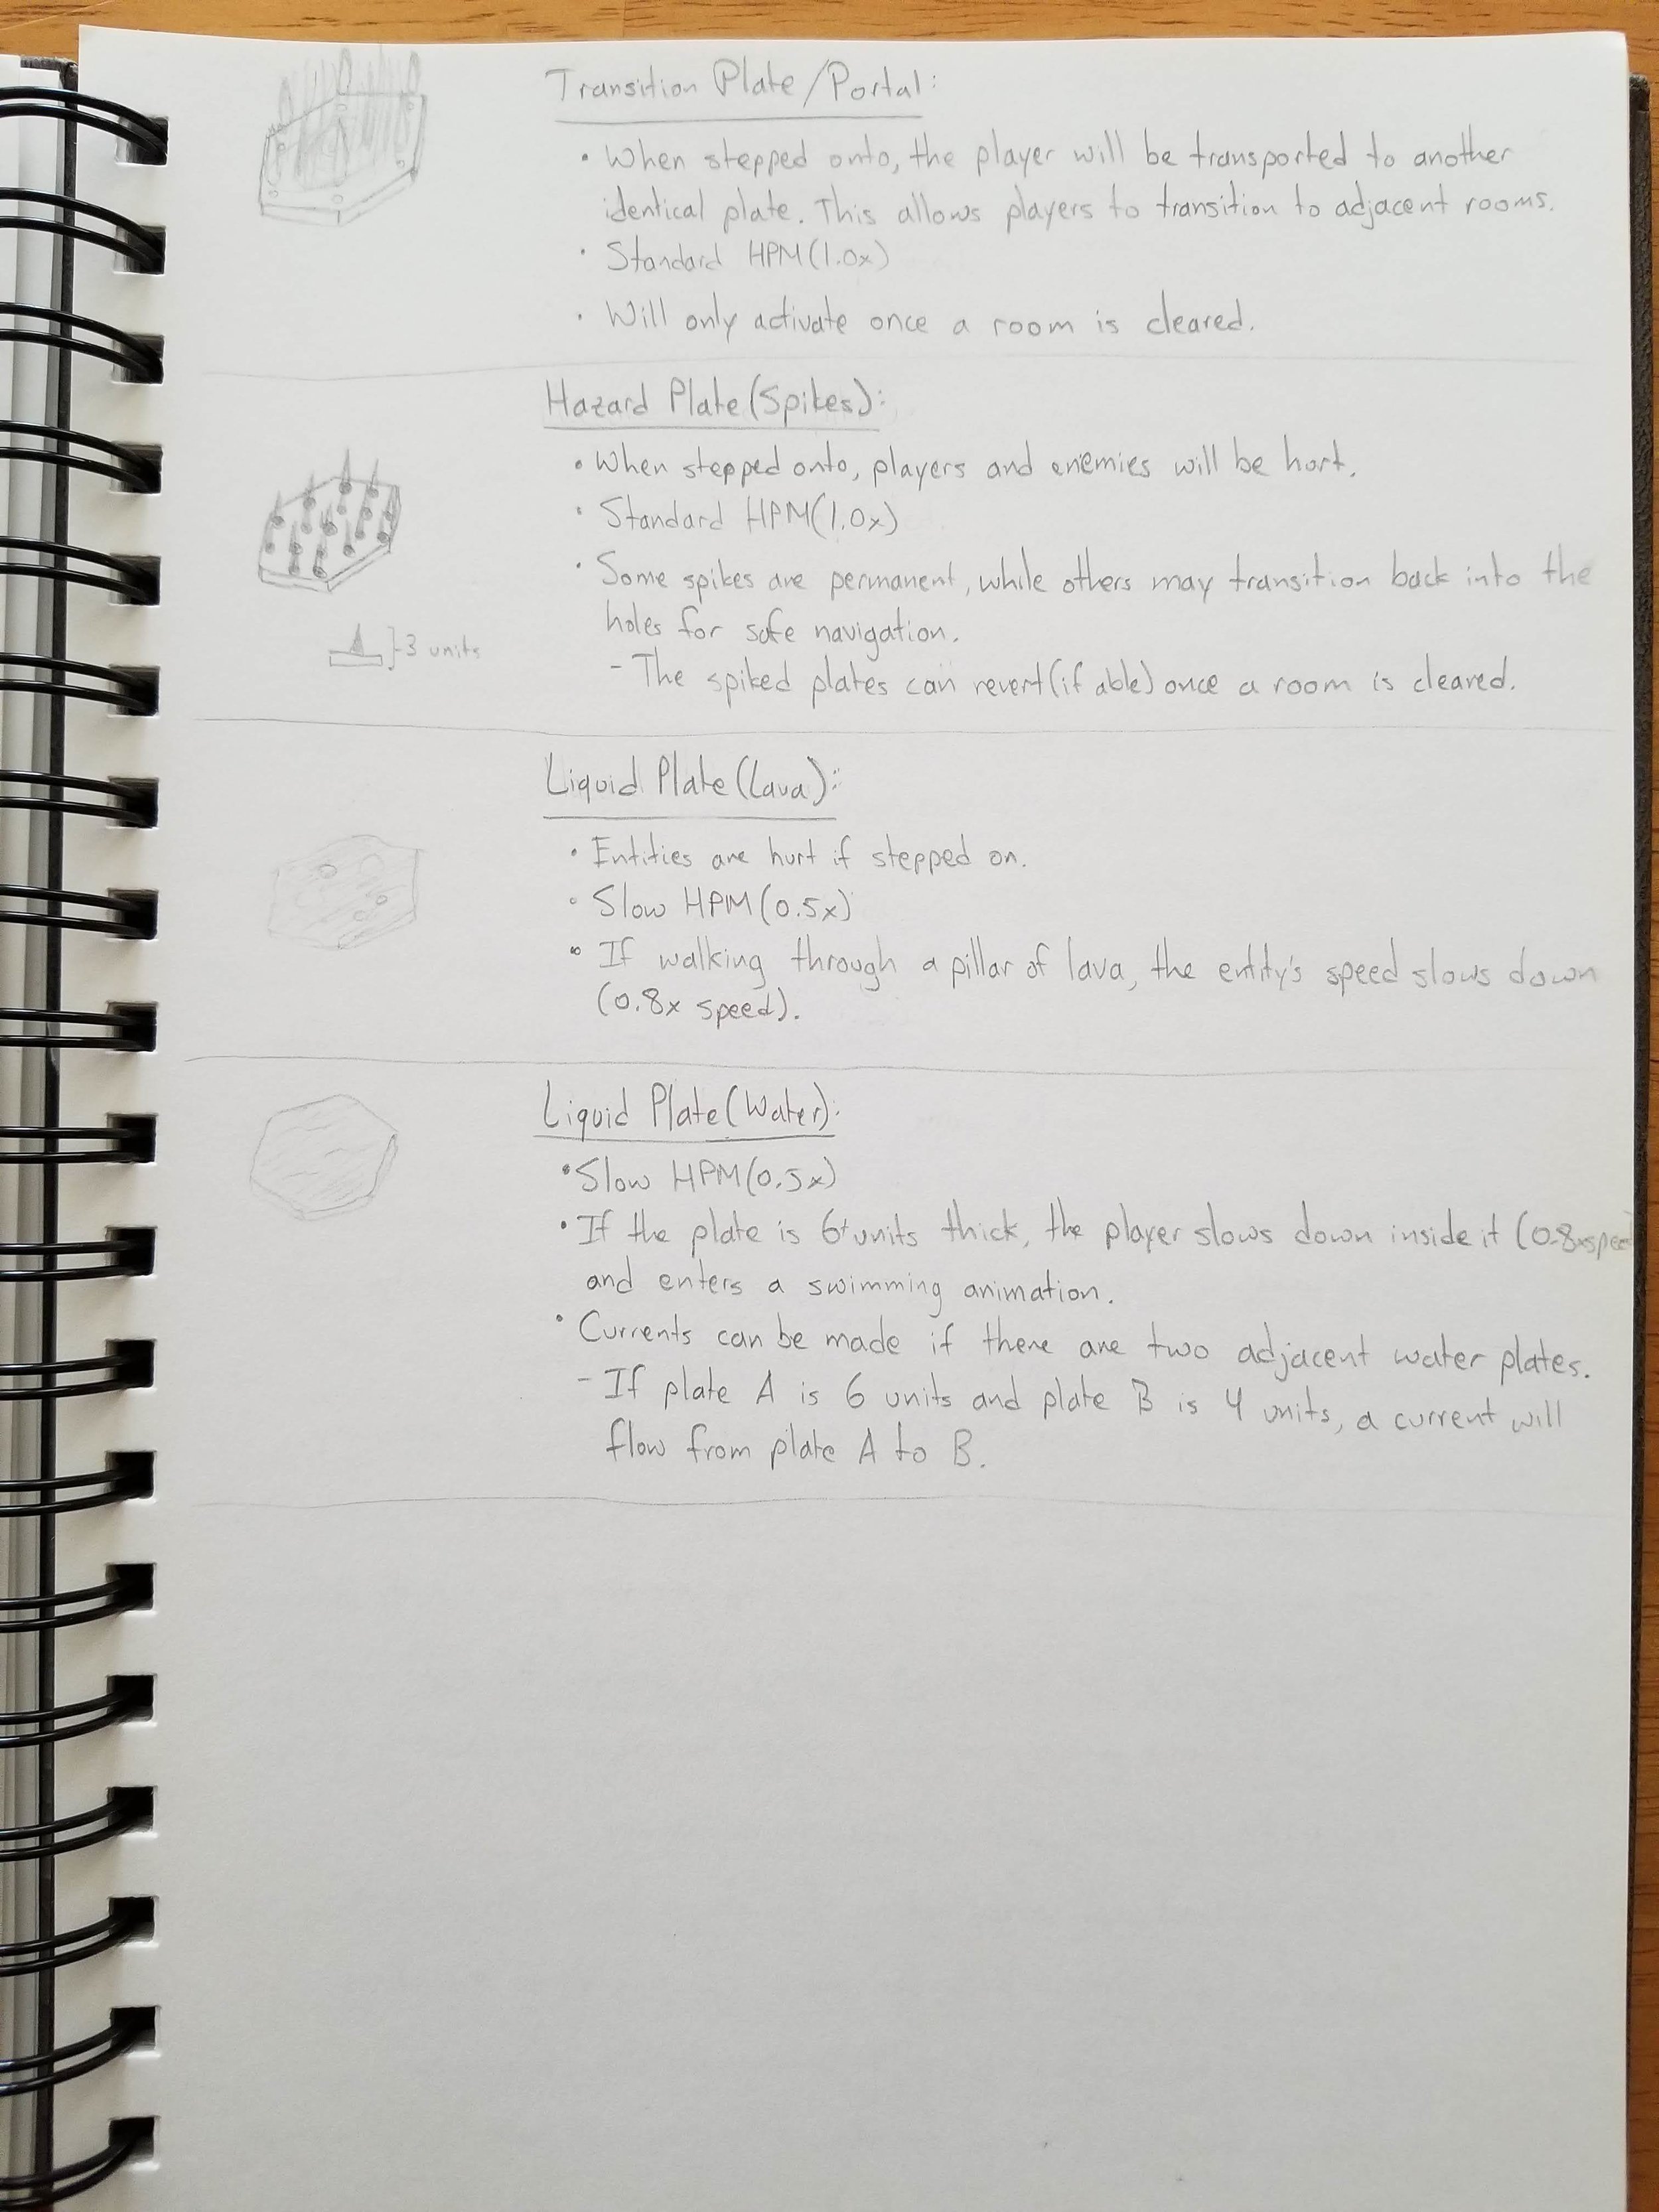 Transition Plate/Portal:
• When stepped onto, the player will be transported to another
identical plate. This allows players to transition to adjacent rooms.
• Standard HPM(1.0x)
• Will only activate once a room is cleared.
Hazard Plate(Spikes):
• When stepped onto, players and enemies will be hurt.
• Standard HPM(1.0x)
• Some spikes are permanent, while others may transition back into the
holes for safe navigation.
- The spiked plates can revert(if able) once a room is cleared.
3 units
Liquid Plate(Lava):
• Entities are hurt if stepped on.
• Slow HPM(0.5x)
• If walking through a pillar of lava, the entity's speed slows down
(0.8x speed).
Liquid Plate(Water):
• Slow HPM(0.5x)
• If the plate is 6+ units thick, the player slows down inside it (0.8x speed
and enters a swimming animation.
• Currents can be made if there are two adjacent water plates.
- If plate A is 6 units and plate B is 4 units, a current will
flow from plate A to B.